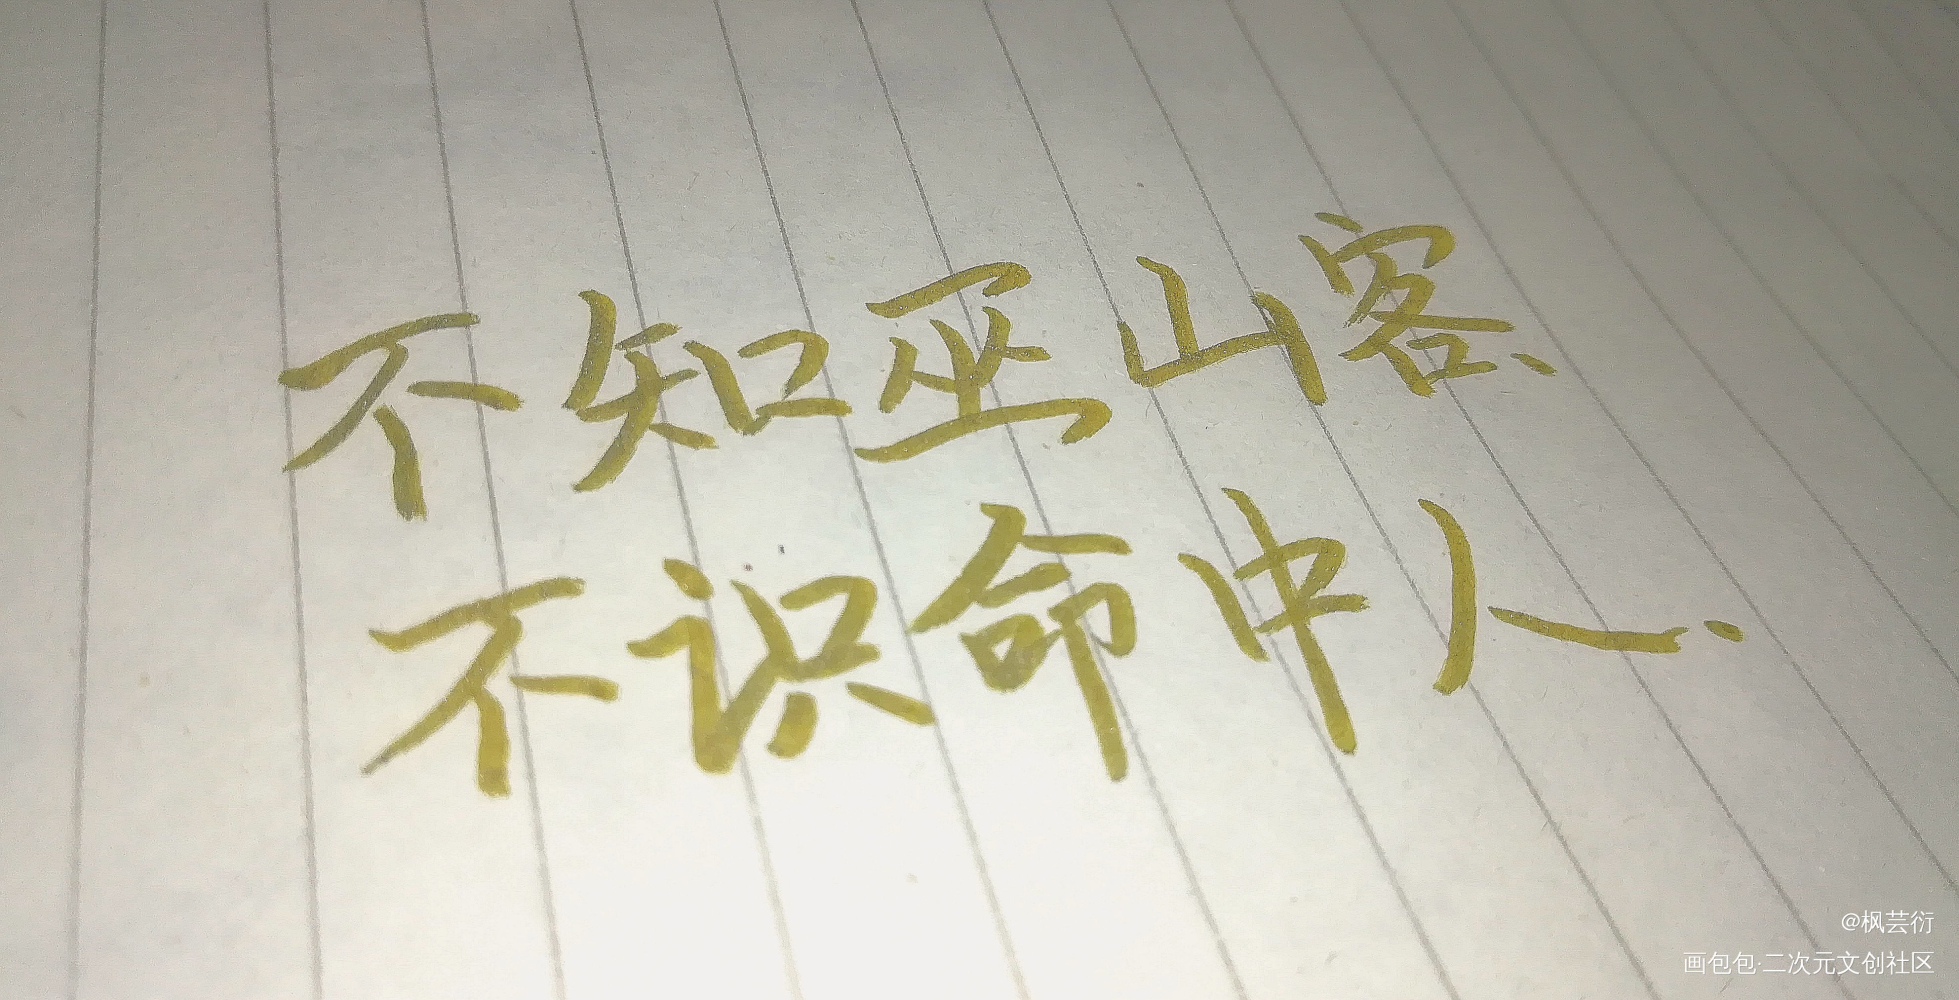 不知巫山客、
不识命中人.
@枫芸衍
画包包·二次元文创社区